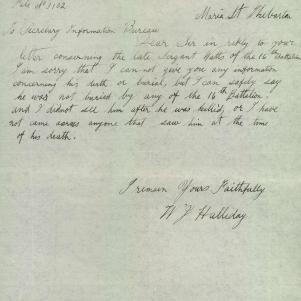 File No 1102
Maria St Thebarton
To Secretary Information Bureau
Dear Sir in reply to your
letter concerning the late Sergant Hatts of the 16th Battalion
I am sorry that I can not give you any information
concerning his deth or burial, but I can safely say
he was not buried by any of the 16th Battalion
and I did not see him after he was killed, or I have
not come across anyone that saw him at the time
of his death.
I remain Yours Faithfully
W J Halliday